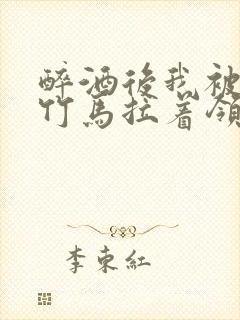 醉酒後我被
竹馬拉着領
李東紅